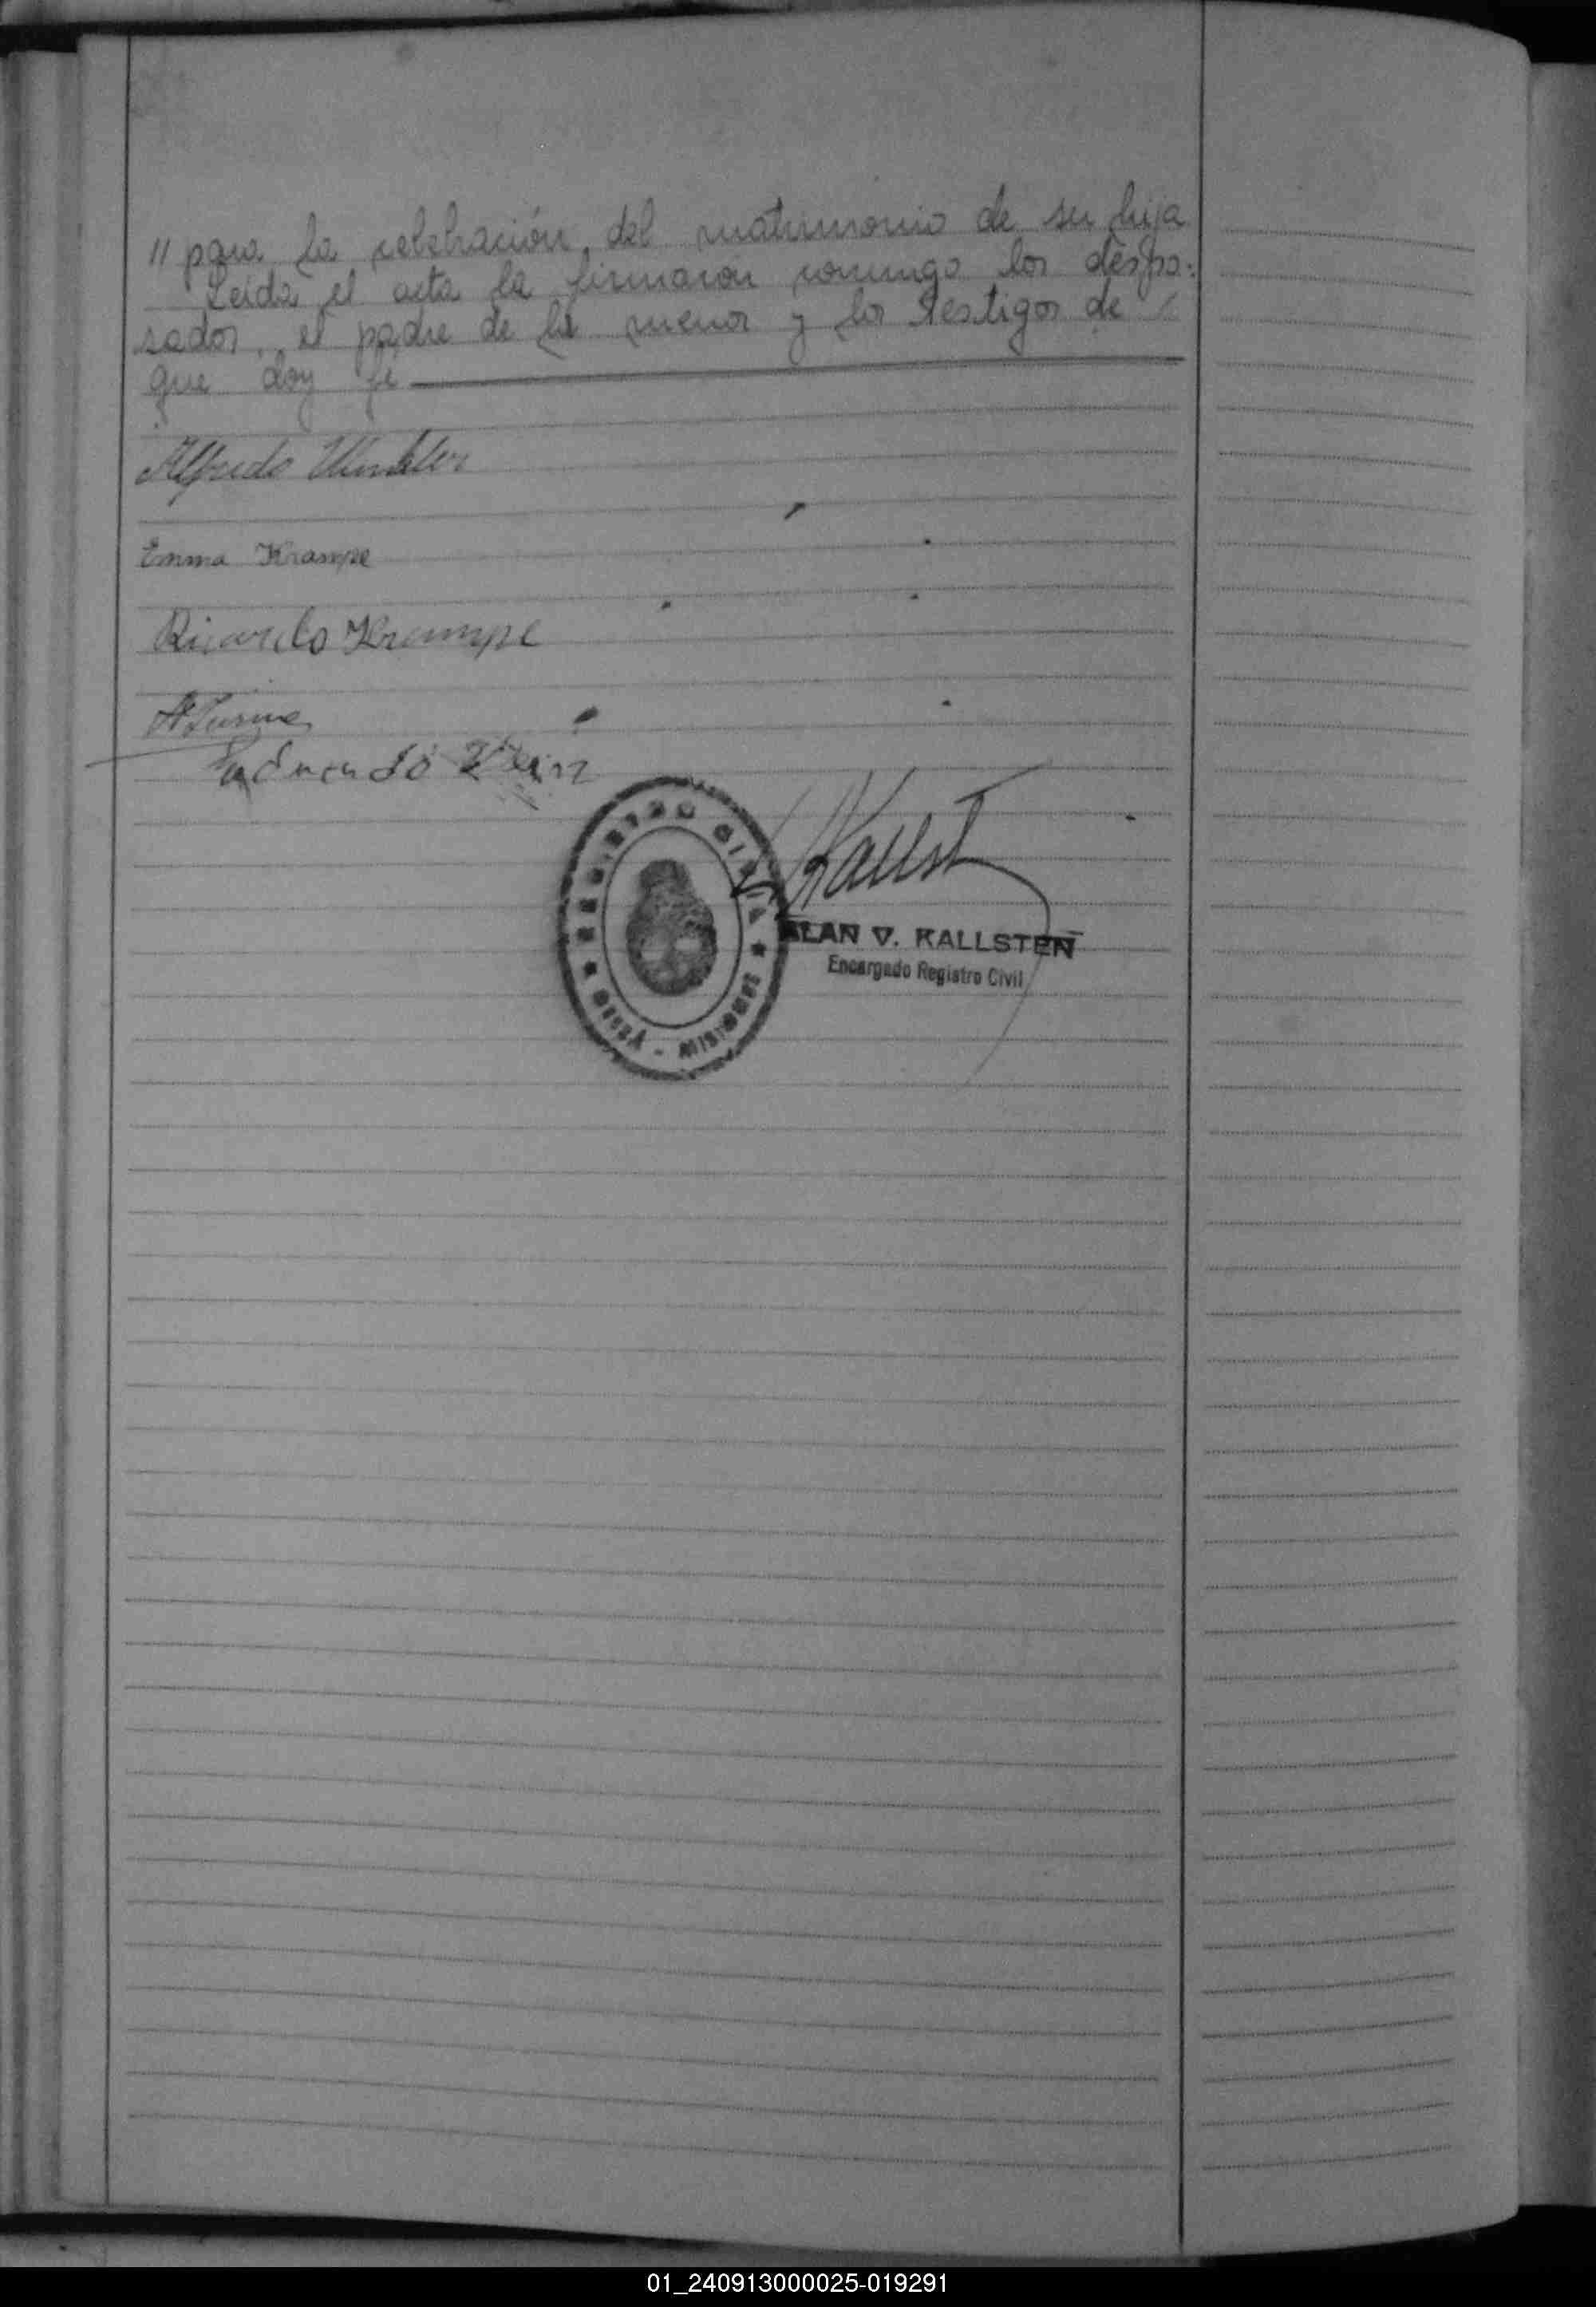 // para la celebración del matrimonio de su hija
Leída el acta la firmaron conmigo los despo-
sados, el padre de la menor y los testigos de
que doy fé
Alfredo Winkler
Emma Krampe
Ricardo Krampe
Eduardo
REGISTRO CIVIL
Misiones
Kallst
ALAN V. KALLSTEN
Encargado Registro Civil
01_240913000025-019291